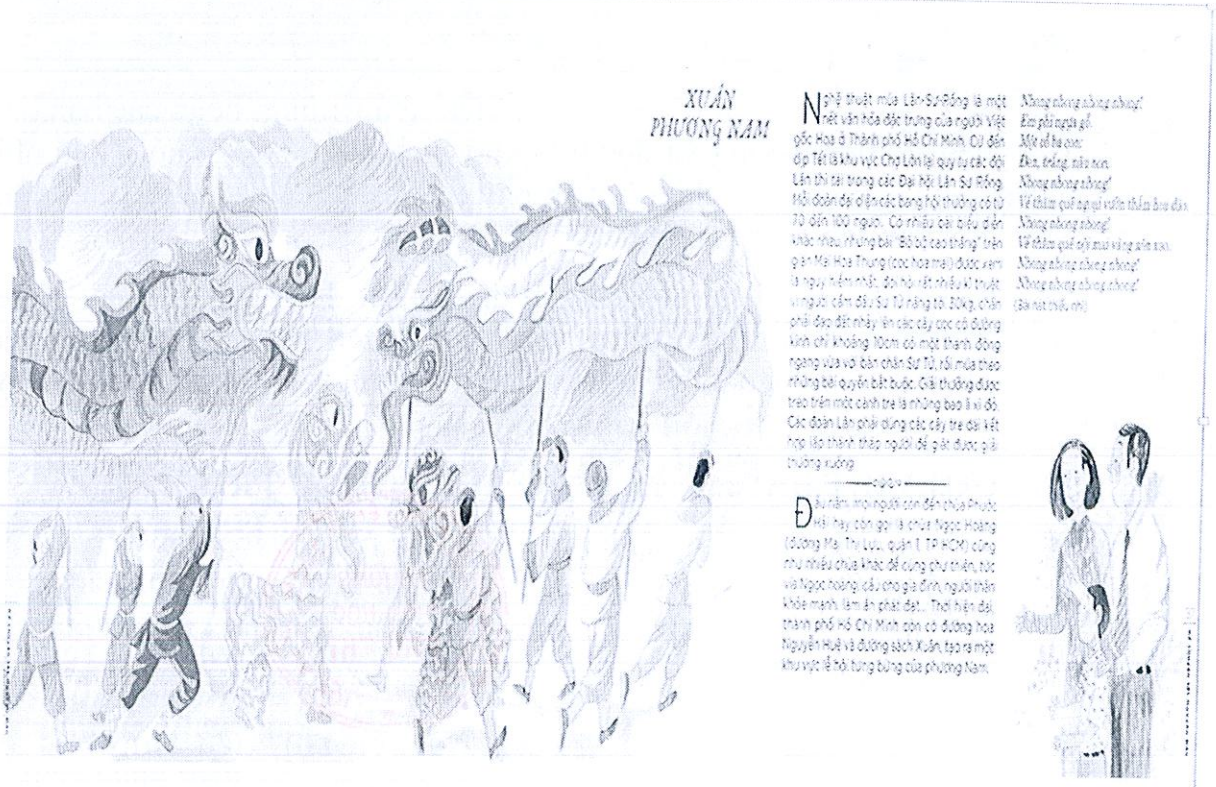 XUÂN
PHƯƠNG NAM
Nghệ thuật múa Lân-Sư-Rồng là một
nét văn hóa đặc trưng của người Việt
gốc Hoa ở Thành phố Hồ Chí Minh. Cứ đến
dịp Tết là khu vực Chợ Lớn lại quy tụ các đội
Lân thi tài trong các Đại hội Lân Sư Rồng.
Mỗi đoàn đại diện các bang hội thường có từ
70 đến 100 người. Có nhiều bài biểu diễn
khác nhau, nhưng bài "Bộ bộ cao thăng" trên
giàn Mai Hoa Thung (cọc hoa mai) được xem
là nguy hiểm nhất, đòi hỏi rất nhiều kĩ thuật
vì người cầm đầu Sư Tử nặng tới 30kg, chân
phải đạp đất nhảy lên các cây cọc có đường
kính chỉ khoảng 10cm có một thanh đồng
ngang vừa với bàn chân Sư Tử, rồi múa theo
những bài quyền bắt buộc. Giải thưởng được
treo trên một cành tre là những bao lì xì đỏ.
Các đoàn Lân phải dùng các cây tre dài kết
hợp lập thành tháp người để giật được giải
thưởng xuống.
Đầu năm, mọi người còn đến chùa Phước
Hải hay còn gọi là chùa Ngọc Hoàng
(đường Mai Thị Lựu, quận 1, TP HCM) cũng
như nhiều chùa khác để cúng chư thiên, tức
vía Ngọc hoàng, cầu cho gia đình, người thân
khỏe mạnh, làm ăn phát đạt... Thời hiện đại,
thành phố Hồ Chí Minh còn có đường hoa
Nguyễn Huệ và đường sách Xuân, tạo ra một
khu vực lễ hội tưng bừng của phương Nam.
Nhong nhong nhong nhong!
Em phi ngựa gỗ.
Một cỗ ba con:
Đen, trắng, nâu non.
Nhong nhong nhong!
Về thăm quê ngoại vườn thắm hoa đào.
Nhong nhong nhong!
Về thăm quê nội mai vàng xôn xao.
Nhong nhong nhong nhong!
Nhong nhong nhong nhong!
(Bài hát thiếu nhi)